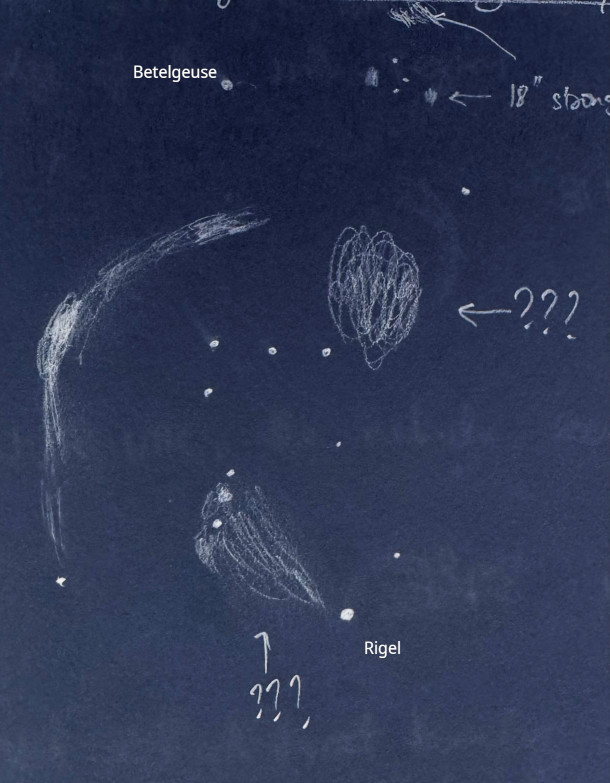 Betelgeuse
← 18" strong
← ???
Rigel
↑
???